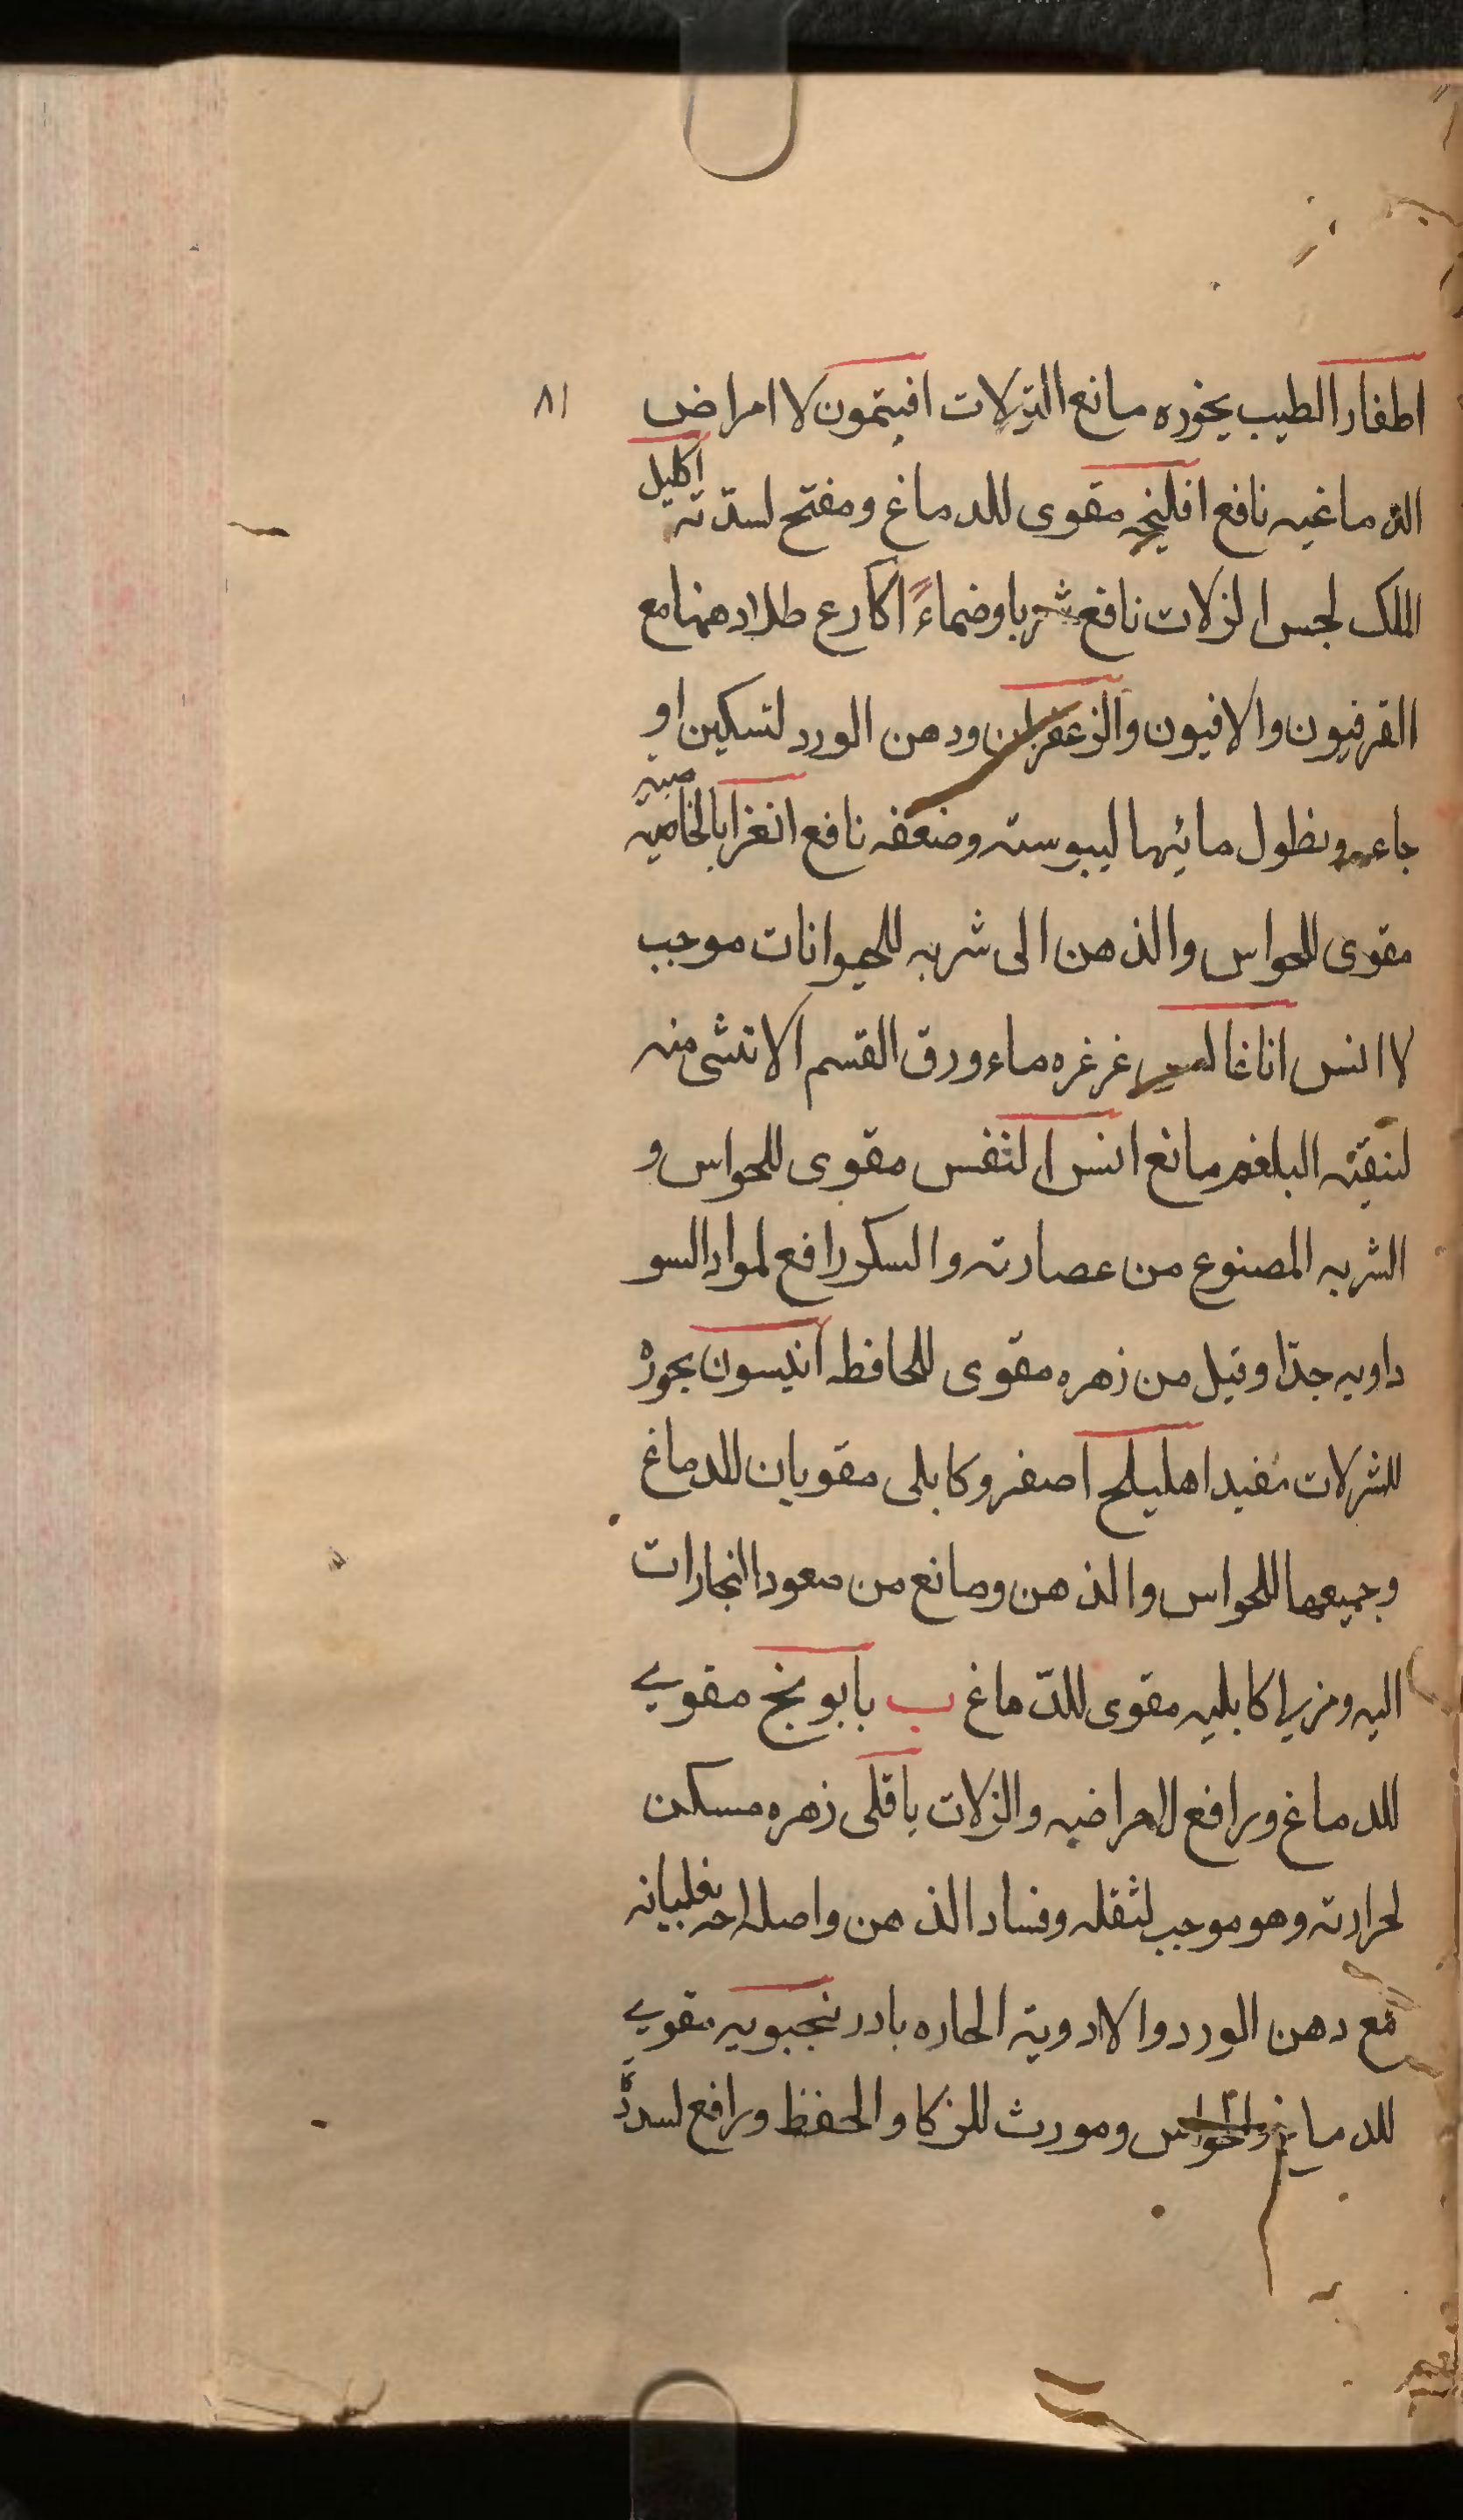 اطفار الطيب بخوره مانع النزلات افيتمون لا امراض
٨١
الدماغيه نافع افليخه مقوى للدماغ ومفتح لسدّته اكليل
الملك لحبس الزلات نافع شربا وضماءً اكارع طلا دهنها مع
القرفيون والافيون والزعفران ودهن الورد لتسكين او
جاعه ونطول مائها ليبوسته وضعفه نافع انغرا بالخاصيته
مقوى للحواس والذهن الى شربه للحيوانات موجب
لا انس اناغا غرغره ماء ورق القسم الانثى منه
لنقيته البلغم مانع انس النفس مقوى للحواس و
الشربه المصنوع من عصارته والسكر رافع لمواد السو
داويه جدّا وقيل من زهره مقوى للحافطه انيسون بخوره
للنزلات مفيد اهليلج اصفر وكابلى مقويان للدماغ
وجميعها للحواس والذهن ومانع من صعود البخارات
اليه ومربا كابليه مقوى للدّماغ ب بابونج مقوي
للدماغ ورافع لامراضيه والزلات باقلى زهره مسكن
لحرارته وهو موجب لثقله وفساد الذهن واصلاحه بغليانه
مع دهن الورد والادوية الحاره بادرنجبويه مقوي
للدماغ والحواس ومورث للزكا والحفظ ورافع لسدّ